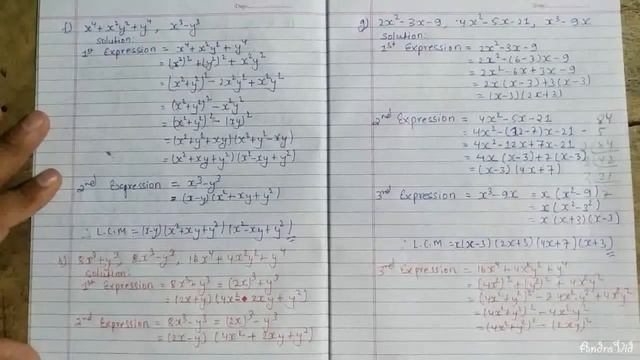 f) x⁴ + x²y² + y⁴ , x³ - y³
Solution:
1st Expression = x⁴ + x²y² + y⁴
= (x²)² + (y²)² + x²y²
= (x² + y²)² - 2x²y² + x²y²
= (x² + y²)² - x²y²
= (x² + y²)² - (xy)²
= (x² + y² + xy) (x² + y² - xy)
= (x² + xy + y²) (x² - xy + y²)
2nd Expression = x³ - y³
= (x-y) (x² + xy + y²)
∴ L.C.M = (x-y) (x² + xy + y²) (x² - xy + y²)
h) 8x³ + y³, 8x³ - y³, 16x⁴ + 4x²y² + y⁴
Solution:
1st Expression = 8x³ + y³ = (2x)³ + y³
= (2x + y) (4x² - 2xy + y²)
2nd Expression = 8x³ - y³ = (2x)³ - y³
= (2x - y) (4x² + 2xy + y²)
g) 2x² - 3x - 9, 4x² - 5x - 21, x³ - 9x
Solution:
1st Expression = 2x² - 3x - 9
= 2x² - (6-3)x - 9
= 2x² - 6x + 3x - 9
= 2x (x-3) + 3(x-3)
= (x-3) (2x+3)
2nd Expression = 4x² - 5x - 21
= 4x² - (12-7)x - 21
= 4x² - 12x + 7x - 21
= 4x (x-3) + 7 (x-3)
= (x-3) (4x+7)
3rd Expression = x³ - 9x = x (x² - 9)
= x (x² - 3²)
= x (x+3) (x-3)
∴ L.C.M = x(x-3) (2x+3) (4x+7) (x+3)
3rd Expression = 16x⁴ + 4x²y² + y⁴
= (4x²)² + (y²)² + 4x²y²
= (4x² + y²)² - 2·4x²y² + 4x²y²
= (4x² + y²)² - 4x²y²
= (4x² + y²)² - (2xy)²